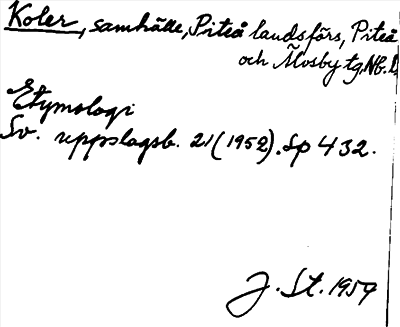 Koler, samhälle, Piteå landsförs, Piteå
och Älvsby tg, Nb. l.
Etymologi
Sv. uppslagsb. 21 (1952). Sp 432.
J. St. 1959